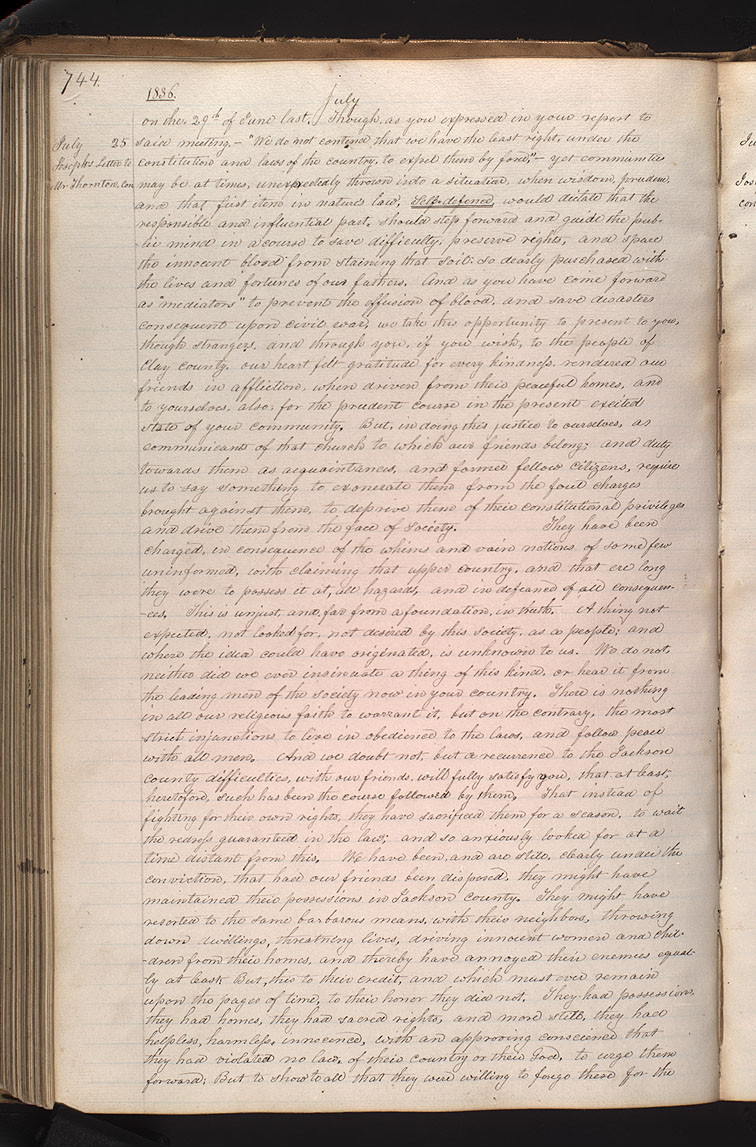 744.
1836.
July
on the 29th of June last. Though, as you expressed in your report to
July 25
said meeting,— "We do not contend that we have the least right, under the
Joseph's Letter to
constitution and laws of the country, to expel them by force;"— yet communities
Mr Thornton, con
may be at times, unexpectedly thrown into a situation, when wisdom, prudence,
and that first item in nature's law, Self-defence, would dictate that the
responsible and influential part, should step forward and guide the pub-
lic mind in a course to save difficulty, preserve rights, and spare
the innocent blood from staining that soil, so dearly purchased with
the lives and fortunes of our fathers. And as you have come forward
as "mediators" to prevent the effusion of blood, and save disasters
consequent upon civil war, we take this opportunity to present to you,
though strangers, and through you, if you wish, to the people of
Clay county, our heart felt gratitude for every kindness rendered our
friends in affliction, when driven from their peaceful homes, and
to yourselves, also, for the prudent course in the present excited
state of your community. But, in doing this, justice to ourselves, as
communicants of that church to which our friends belong; and duty
towards them as acquaintances, and former fellow citizens, require
us to say something to exonerate them from the foul charges
brought against them, to deprive them of their constitutional privileges
and drive them from the face of society. They have been
charged, in consequence of the whims and vain notions of some few
uninformed, with claiming that upper country, and that ere long
they were to possess it at, all hazards, and in defeance of all consequen-
-ces. This is unjust, and far from a foundation, in truth. A thing not
expected, not looked for, not desired by this society, as a people; and
where the idea could have originated, is unknown to us. We do not,
neither did we ever insinuate a thing of this kind, or hear it from
the leading men of the society now in your country. There is nothing
in all our religious faith to warrant it, but on the contrary, the most
strict injunctions to live in obedience to the laws, and follow peace
with all men. And we doubt not, but a recurrence to the Jackson
county difficulties, with our friends, will fully satisfy you, that at least,
heretofore, such has been the course followed by them. That instead of
fighting for their own rights, they have sacrificed them for a season, to wait
the redress guaranteed in the law; and so anxiously looked for at a
time distant from this. We have been, and are still, clearly under the
conviction, that had our friends been disposed, they might have
maintained their possessions in Jackson county. They might have
resorted to the same barbarous means, with their neighbors, throwing
down dwellings, threatning lives, driving innocent women and chil-
-dren from their homes, and thereby have annoyed their enemies equal-
ly at least: But, this to their credit, and which must ever remain
upon the pages of time, to their honor they did not. They had possessions,
they had homes, they had sacred rights, and more still, they had
helpless, harmless, innocence, with an approving conscience that
they had violated no law, of their country or their God, to urge them
forward; But to show to all that they were willing to forego these for the